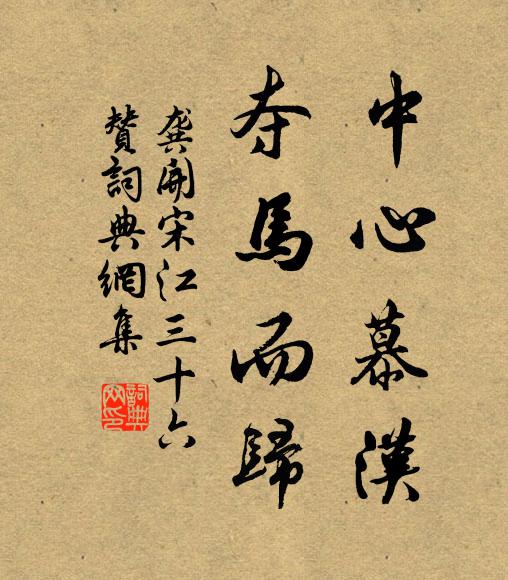 中心慕漢
夺馬而歸
龚開宋江三十六
贊詞典網集
詞典
网印